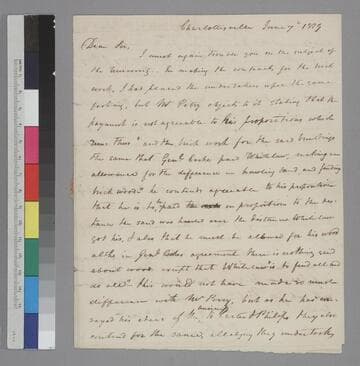 Charlottesville June 7th 1819
Dear Sir,
I must again trouble you on the subject of
the University. In making the contracts for the brick
work, I has placed the undertakers upon the same
footing, but Mr Perry objects to it stating that the
payment is not agreeable to his propositions which
runs thus " and the brick work for the said buildings
the same that Genl Cocke paid Whitelaw, making an
allowance for the difference in hauling sand and finding
brick wood" he contends agreeable to his proposition
that he is to be paid in proportion to the dis-
tance the sand was hauled over the distance Whitelaw
got his, & also that he must be allowed for his wood
altho in Genl Cockes agreement there is nothing said
about wood except that Whitelaw is to find all and
do all" this would not have made so much
difference with Mr Perry, but as he had
his share of the to Carter & Philips they also
contend for the same, alledging they undertook